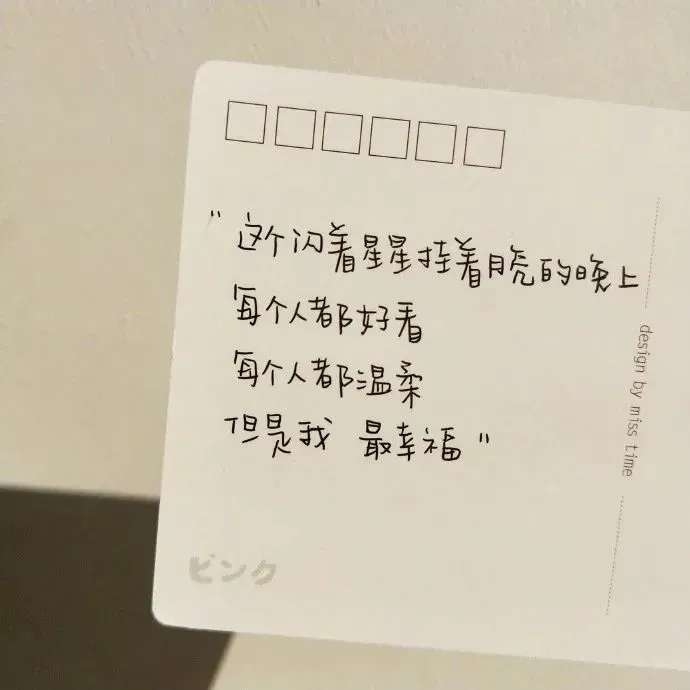 "这个闪着星星挂着月亮的晚上
每个人都好看
每个人都温柔
但是我 最幸福"
design by miss time
ピンク